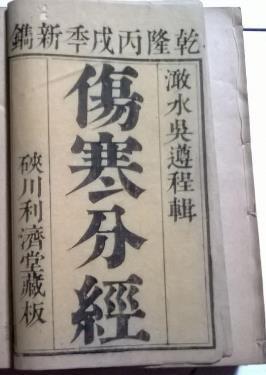 乾隆丙戌秊新鐫
澉水吳遵程輯
傷寒分經
硤川利濟堂藏板